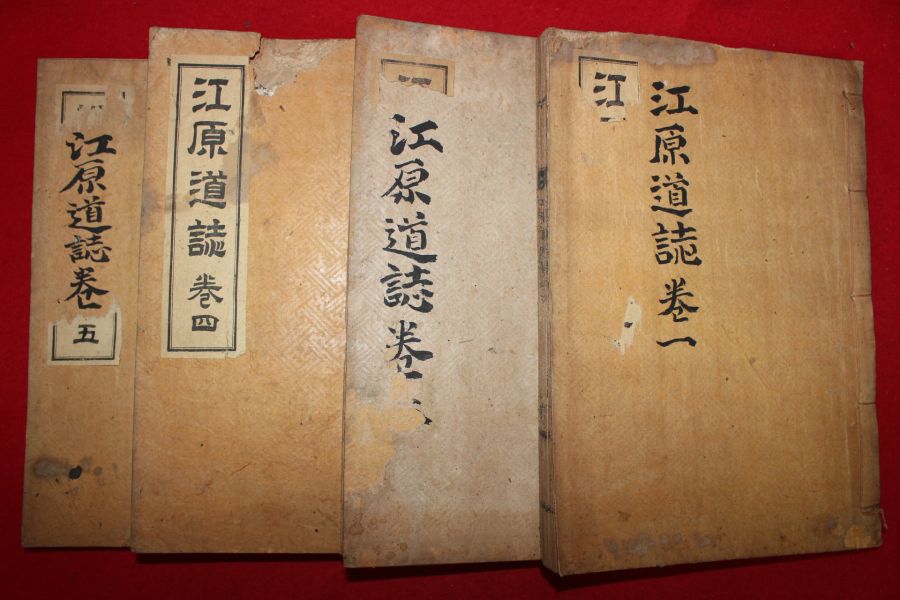 江
江原道誌 卷一
江原道誌 卷
江原道誌 卷四
江原道誌 卷
五